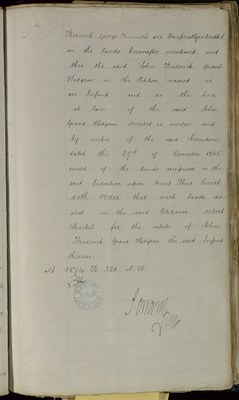 Frederick George Pinnock are beneficially entitled
in the lands hereinafter mentioned and
that the said John Frederick Grant
Hodgson in the Petition named is
an Infant and as the heir
at law of the said John
Grant Hodgson deceased is under and
by virtue of the said Indenture
dated the 29th of December 1865
seized of the lands comprised in the
said Indenture upon trust This Court
doth Order that such lands do
vest in the said Petitioner
for the estate of John
Frederick Grant Hodgson the said Infant
therein
1874